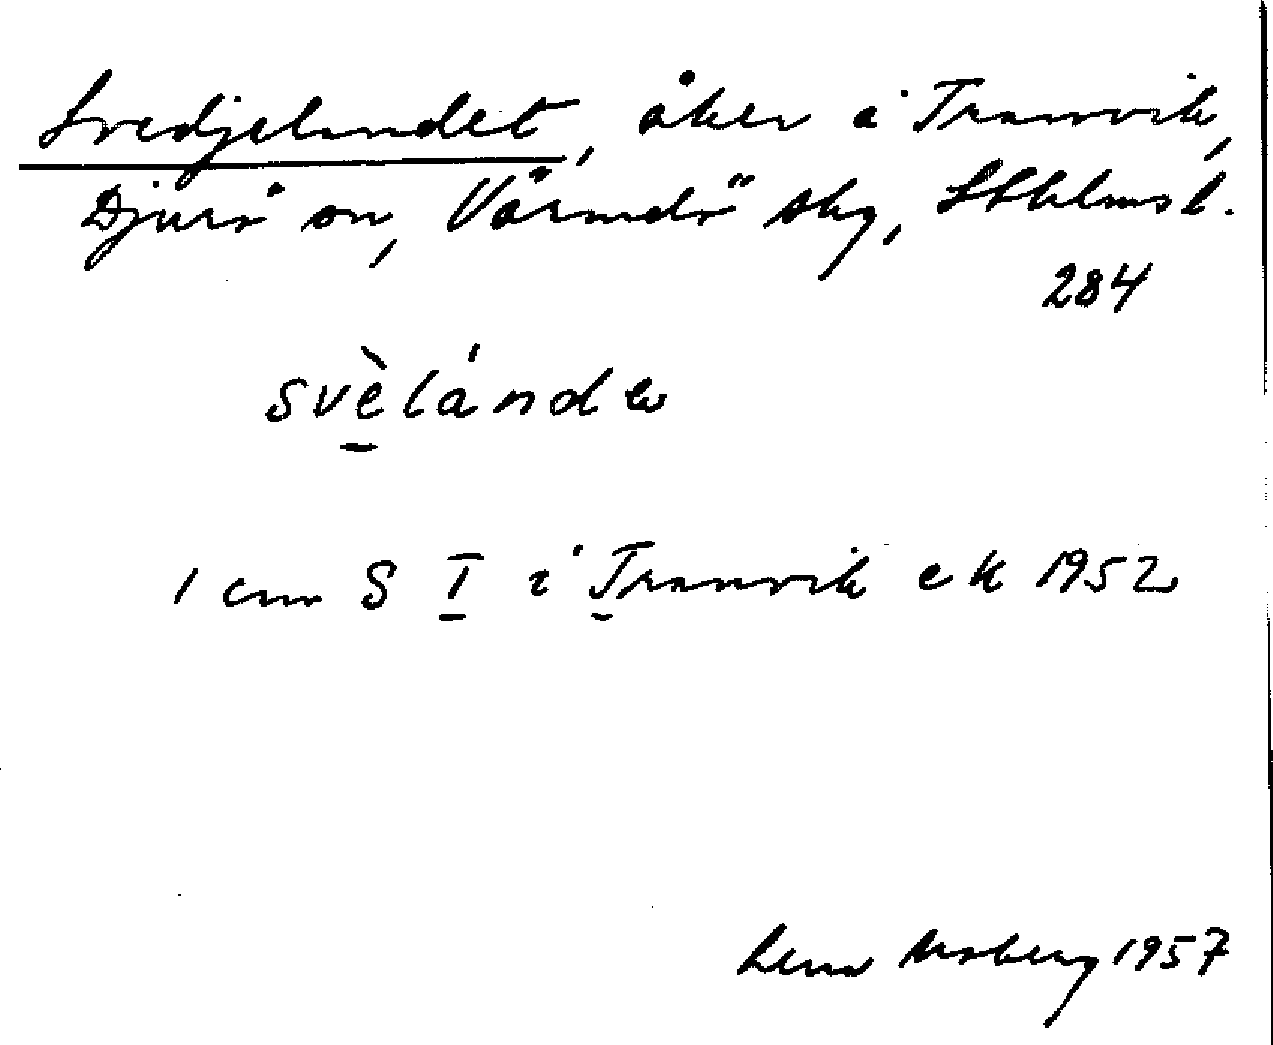 Svedjelandet, åker i Tranvik,
Djurö sn, Värmdö skg, Sthlms l.
284
svèlánde
1 cm S I i Tranvik ek 1952
Lena Moberg 1957